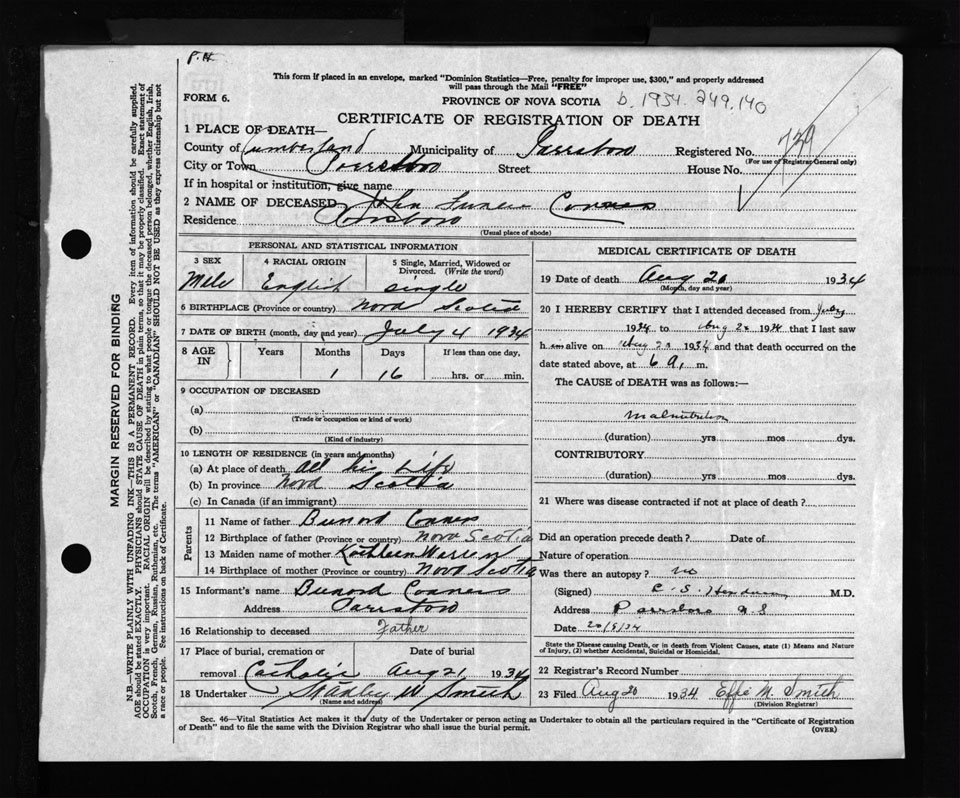 P.H.
This form if placed in an envelope, marked "Dominion Statistics—Free, penalty for improper use, $300," and properly addressed
will pass through the Mail "FREE"
FORM 6.
PROVINCE OF NOVA SCOTIA
b. 1934. 249.140
CERTIFICATE OF REGISTRATION OF DEATH
1 PLACE OF DEATH—
County of Cumberland Municipality of Parrsboro Registered No. 739
(For use of Registrar General only)
City or Town Parrsboro Street House No.
If in hospital or institution, give name
2 NAME OF DECEASED John Conners
Residence Parrsboro
(Usual place of abode)
PERSONAL AND STATISTICAL INFORMATION
3 SEX 4 RACIAL ORIGIN 5 Single, Married, Widowed or Divorced. (Write the word)
Male English single
6 BIRTHPLACE (Province or country) Nova Scotia
7 DATE OF BIRTH (month, day and year) July 4 1934
8 AGE IN Years Months Days If less than one day,
1 16 hrs. or min.
9 OCCUPATION OF DECEASED
(a)
(Trade or occupation or kind of work)
(b)
(Kind of industry)
10 LENGTH OF RESIDENCE (in years and months)
(a) At place of death all his Life
(b) In province Nova Scotia
(c) In Canada (if an immigrant)
Parents
11 Name of father Bunord Conners
12 Birthplace of father (Province or country) Nova Scotia
13 Maiden name of mother Kathleen Warren
14 Birthplace of mother (Province or country) Nova Scotia
15 Informant's name Bunord Conners
Address Parrsboro
16 Relationship to deceased Father
17 Place of burial, cremation or removal Date of burial
Catholic Aug 21 1934
18 Undertaker Stanley W Smith
(Name and address)
MEDICAL CERTIFICATE OF DEATH
19 Date of death Aug 20 1934
(Month, day and year)
20 I HEREBY CERTIFY that I attended deceased from July
1934 to Aug 20 1934 that I last saw
h im alive on Aug 20 1934 and that death occurred on the
date stated above, at 6 a. m.
The CAUSE of DEATH was as follows:—
Malnutrition
(duration) yrs mos dys.
CONTRIBUTORY
(duration) yrs mos dys.
21 Where was disease contracted if not at place of death?
Did an operation precede death? Date of
Nature of operation
Was there an autopsy? no
(Signed) C. S. M.D.
Address Parrsboro N.S
Date 20/8/34
State the Disease causing Death, or in death from Violent Causes, state (1) Means and Nature
of Injury, (2) whether Accidental, Suicidal or Homicidal.
22 Registrar's Record Number
23 Filed Aug 20 1934 Effie M. Smith
(Division Registrar)
Sec. 46—Vital Statistics Act makes it the duty of the Undertaker or person acting as Undertaker to obtain all the particulars required in the "Certificate of Registration
of Death" and to file the same with the Division Registrar who shall issue the burial permit. (OVER)
MARGIN RESERVED FOR BINDING
N.B.—WRITE PLAINLY WITH UNFADING INK—THIS IS A PERMANENT RECORD. Every item of information should be carefully supplied.
AGE should be stated EXACTLY. PHYSICIANS should STATE CAUSE OF DEATH in plain terms, so that it may be properly classified. Exact statement of
OCCUPATION is very important. RACIAL ORIGIN will be described by stating to what people or tongue the deceased person belonged, whether English, Irish,
Scotch, French, German, Russian, Ruthenian, etc. The terms "AMERICAN" or "CANADIAN" SHOULD NOT BE USED as they express citizenship but not
a race or people. See instructions on back of Certificate.